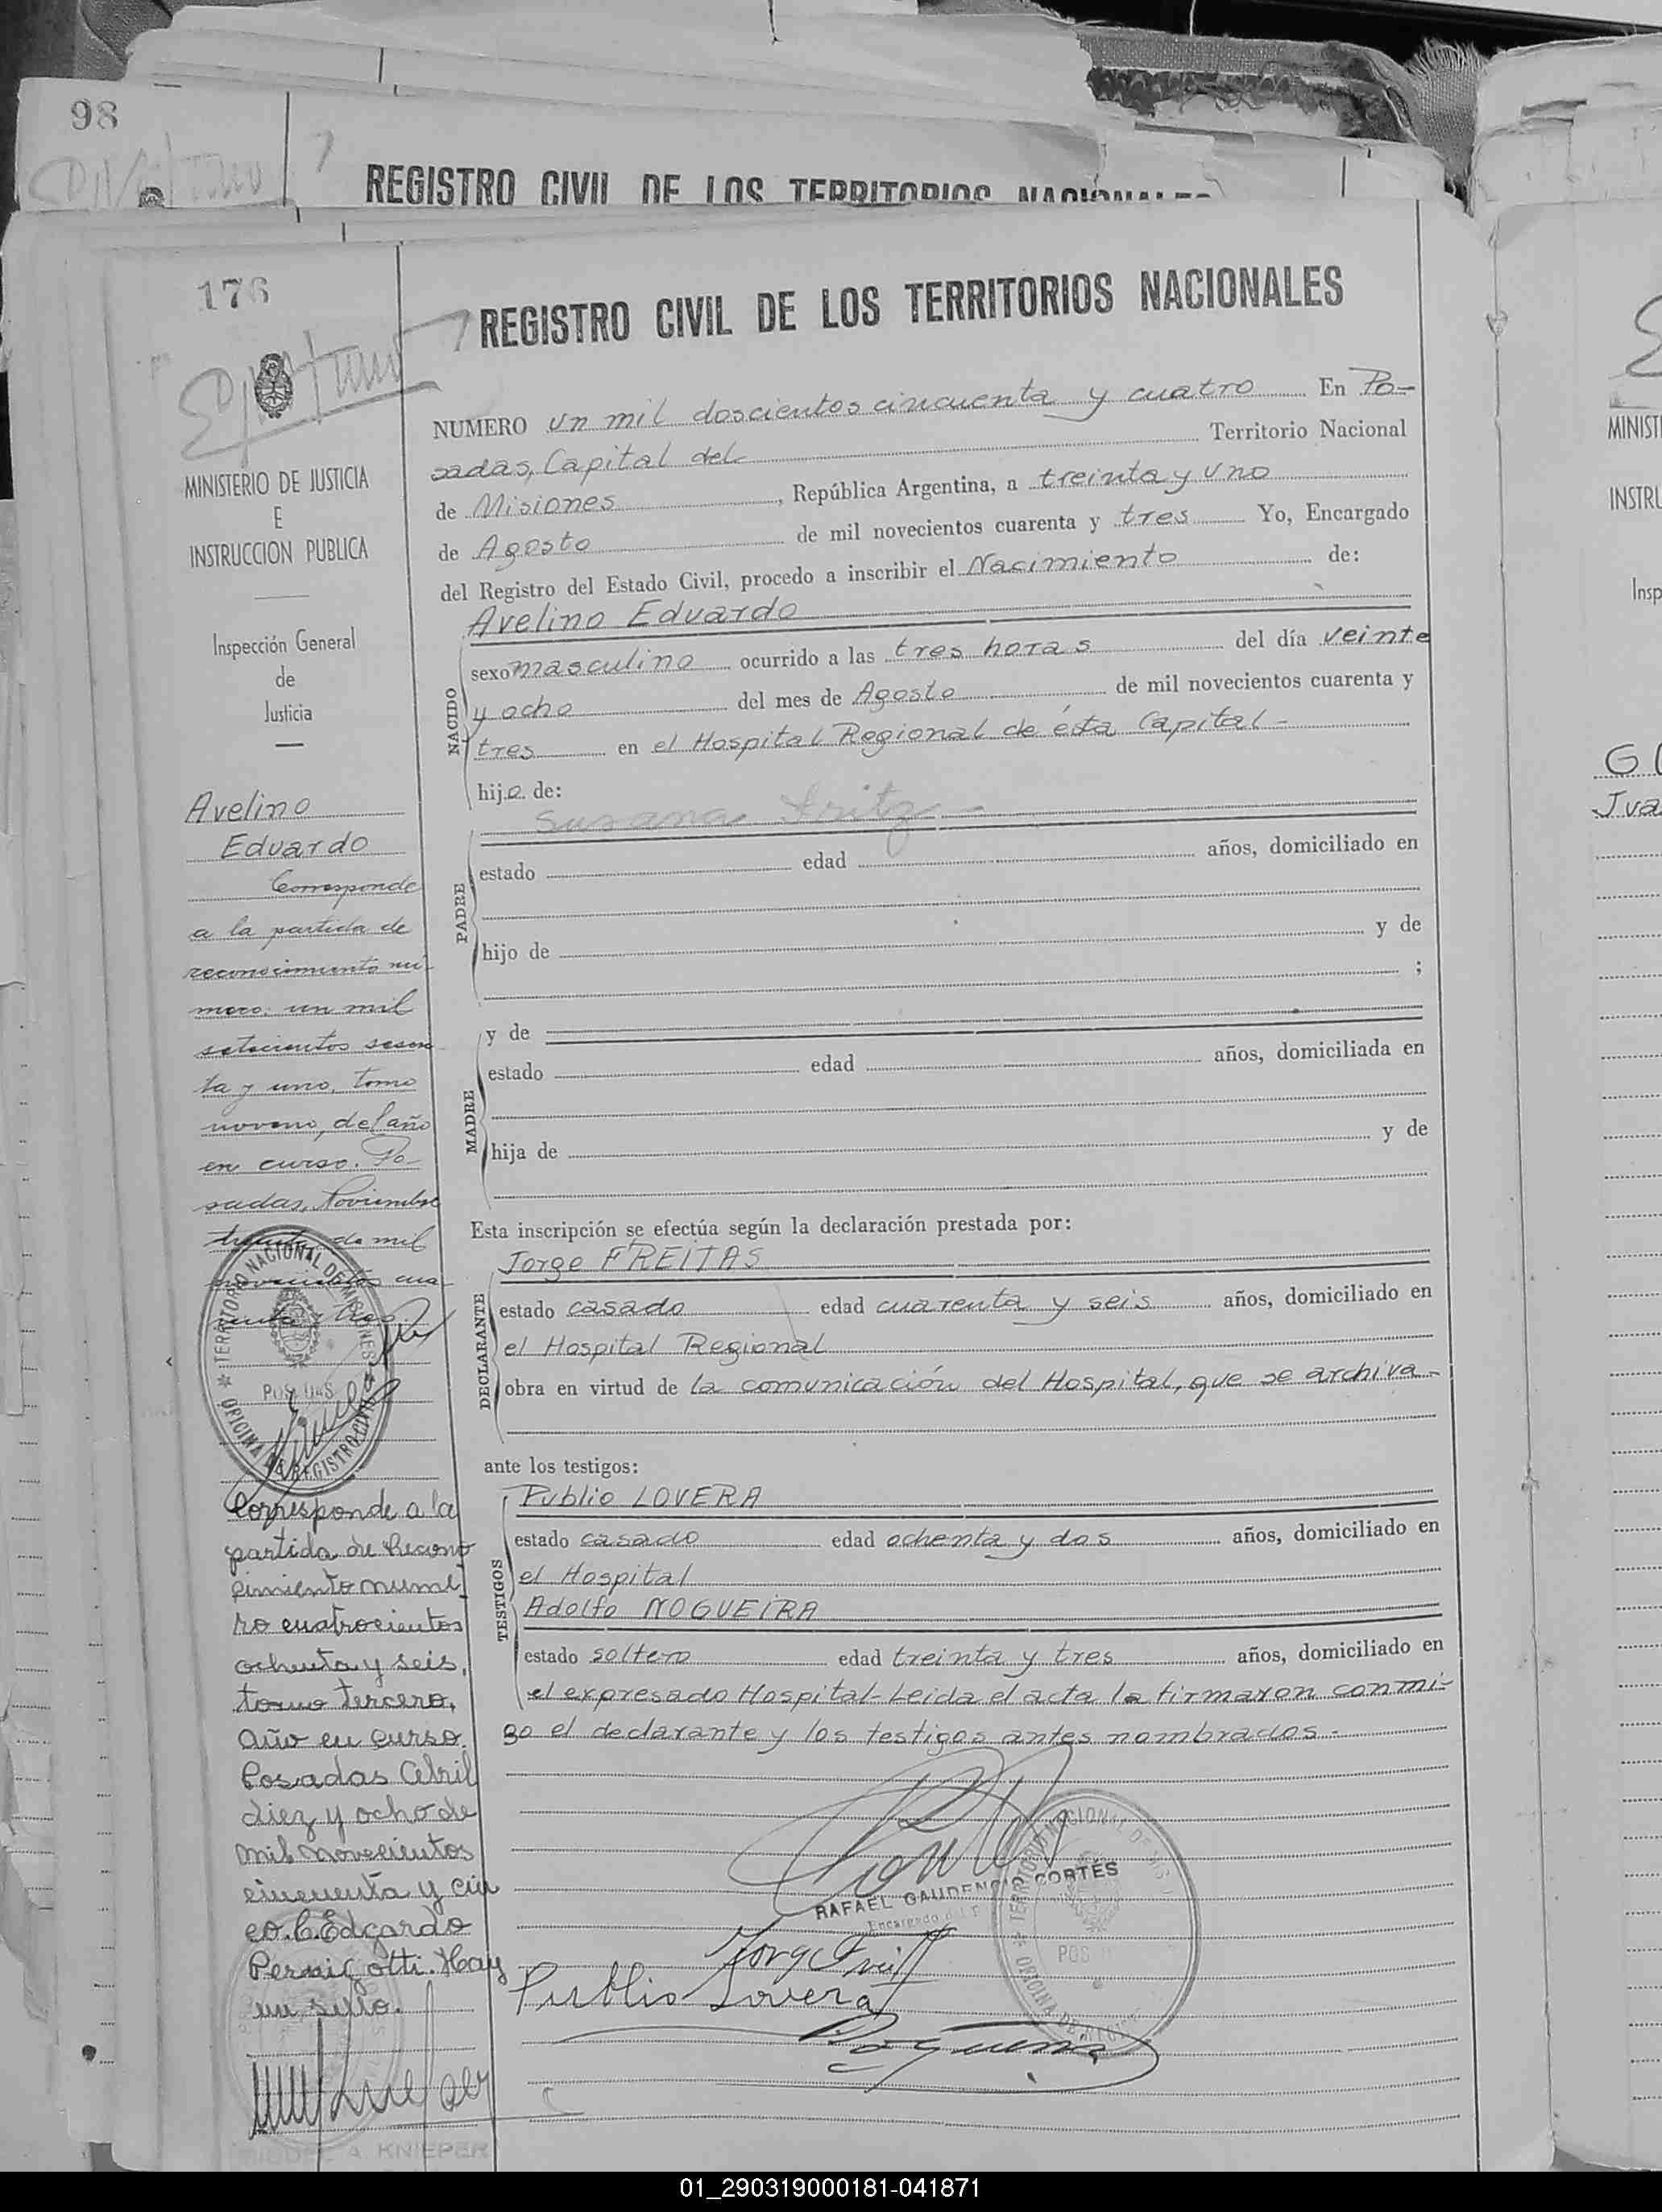 98
REGISTRO CIVIL DE LOS TERRITORIOS NACIONALES
176
REGISTRO CIVIL DE LOS TERRITORIOS NACIONALES
MINISTERIO DE JUSTICIA
E
INSTRUCCION PUBLICA
Inspección General
de
Justicia
Avelino
Eduardo
Corresponde
a la partida de
reconocimiento nú-
mero: un mil
setecientos sesen
ta y uno, tomo
noveno, del año
en curso. Po-
sadas, Noviembre
treinta de mil
novecientos cua-
renta y tres
TERRITORIO NACIONAL DE MISIONES
POSADAS
OFICINA DE REGISTRO CIVIL
Corresponde a la
partida de Recono
cimiento núme
ro cuatrocientos
ochenta y seis,
tomo tercero,
año en curso.
Posadas Abril
diez y ocho de
mil novecientos
cincuenta y cin
co. C. Edgardo
Pernigotti. Hay
un sello.
A. KNIEPER
NUMERO un mil doscientos cincuenta y cuatro En Po-
sadas, Capital del Territorio Nacional
de Misiones, República Argentina, a treinta y uno
de Agosto de mil novecientos cuarenta y tres Yo, Encargado
del Registro del Estado Civil, procedo a inscribir el Nacimiento de:
Avelino Eduardo
NACIDO
sexo masculino ocurrido a las tres horas del día veinte
y ocho del mes de Agosto de mil novecientos cuarenta y
tres en el Hospital Regional de ésta Capital-
hijo de:
Susana Fritz-
PADRE
estado edad años, domiciliado en
hijo de y de
;
MADRE
y de
estado edad años, domiciliada en
hija de y de
Esta inscripción se efectúa según la declaración prestada por:
Jorge FREITAS
DECLARANTE
estado casado edad cuarenta y seis años, domiciliado en
el Hospital Regional
obra en virtud de la comunicación del Hospital, que se archiva-
ante los testigos:
Publio LOVERA
TESTIGOS
estado casado edad ochenta y dos años, domiciliado en
el Hospital
Adolfo NOGUEIRA
estado soltero edad treinta y tres años, domiciliado en
el expresado Hospital-Leida el acta la firmaron conmi-
go el declarante y los testigos antes nombrados.-
RAFAEL GAUDENCIO CORTÉS
Encargado del
TERRITORIO NACIONAL DE MISI
POS
OFICINA DE REGI
Publio Lovera
MINISTI
INSTRU
Insp
Jua
01_290319000181-041871